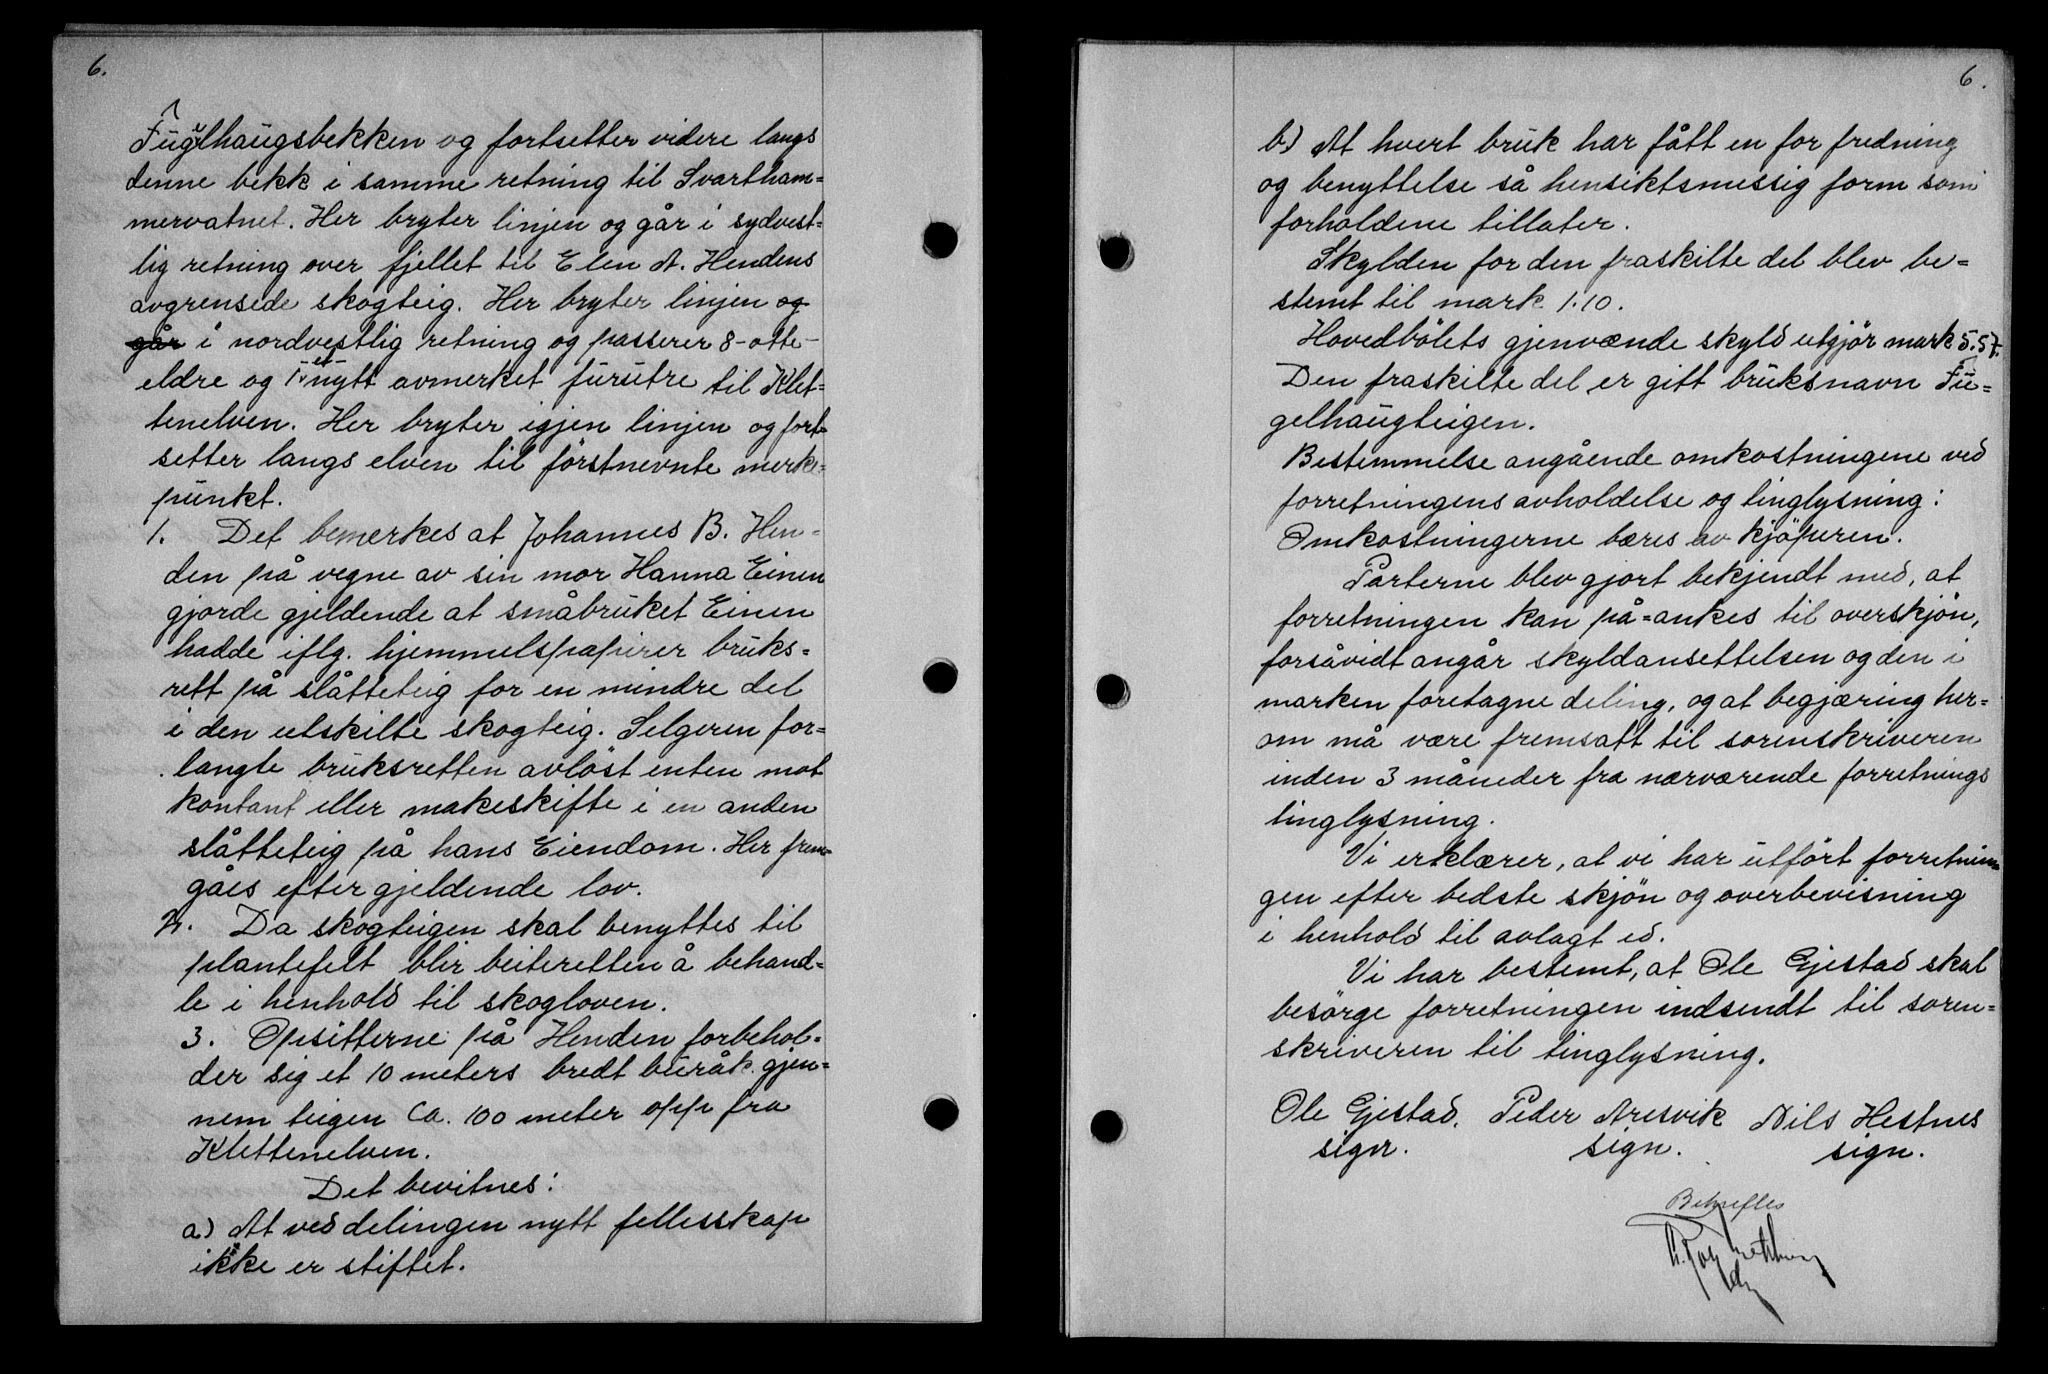 6.
Fugelhaugsbekken og fortsetter videre langs
denne bekk i samme retning til Svartham=
mervatnet. Her bryter linjen og går i sydvest=
lig retning over fjellet til Elen A. Hendens
avgrensede skogteig. Her bryter linjen og
går i nordvestlig retning og passerer 8-otte-
eldre og 1-et- nytt avmerket furutre til Klet=
tenelven. Her bryter igjen linjen og fort=
setter langs elven til förstnevnte merke=
punkt.
1. Det bemerkes at Johannes B. Hen=
den på vegne av sin mor Hanna Einen
gjorde gjeldende at småbruket Einen
hadde iflg. hjemmelspapirer bruks=
rett på slåtteteig for en mindre del
i den utskilte skogteig. Selgeren for=
langte bruksretten avlöst enten mot
kontant eller makeskifte i en anden
slåtteteig på hans Eiendom. Her frem=
gåes efter gjeldende lov.
2. Da skogteigen skal benyttes til
plantefelt blir beiteretten å behand=
le i henhold til skogloven.
3. Opsitterne på Henden forbehol=
der sig et 10 meters bredt buråk gjen=
nem teigen ca. 100 meter opp fra
Klettenelven.
Det bevitnes:
a) At ved delingen nytt fellesskap
ikke er stiftet.
6.
b) At hvert bruk har fått en for fredning
og benyttelse så hensiktsmessig form som
forholdene tillater.
Skylden for den fraskilte del blev be=
stemt til mark 1.10.
Hovedbölets gjenværende skyld utgjör mark 5.57.
Den fraskilte del er gitt bruksnavn Fu=
gelhaugteigen.
Bestemmelse angående omkostningene ved
forretningens avholdelse og tinglysning:
Omkostningerne bæres av kjöperen.
Parterne blev gjort bekjendt med, at
forretningen kan på=ankes til overskjön,
forsåvidt angår skyldansettelsen og den i
marken foretagne deling, og at begjæring her=
om må være fremsatt til sorenskriveren
inden 3 måneder fra nærværende forretnings
tinglysning.
Vi erklærer, at vi har utfört forretnin=
gen efter bedste skjön og overbevisning
i henhold til avlagt ed.
Vi har bestemt, at Ole Gjestad skal
besörge forretningen indsendt til soren=
skriveren til tinglysning.
Ole Gjestad. Peder Aresvik Nils Hestnes
sign. sign. sign.
Bekreftes